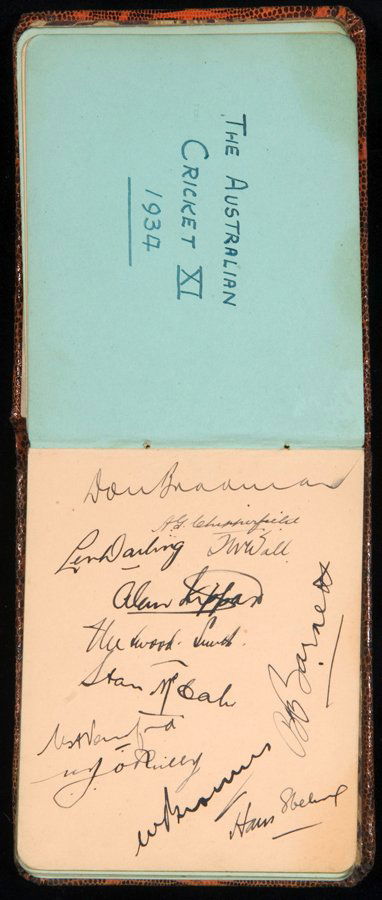 THE AUSTRALIAN
CRICKET XI
1934
Don Bradman
A.G. Chipperfield
Len Darling
T W Wall
Alan Kippax
Stan McCabe
W J O'Reilly
B A Barnett
W Bromley
Hans Ebeling